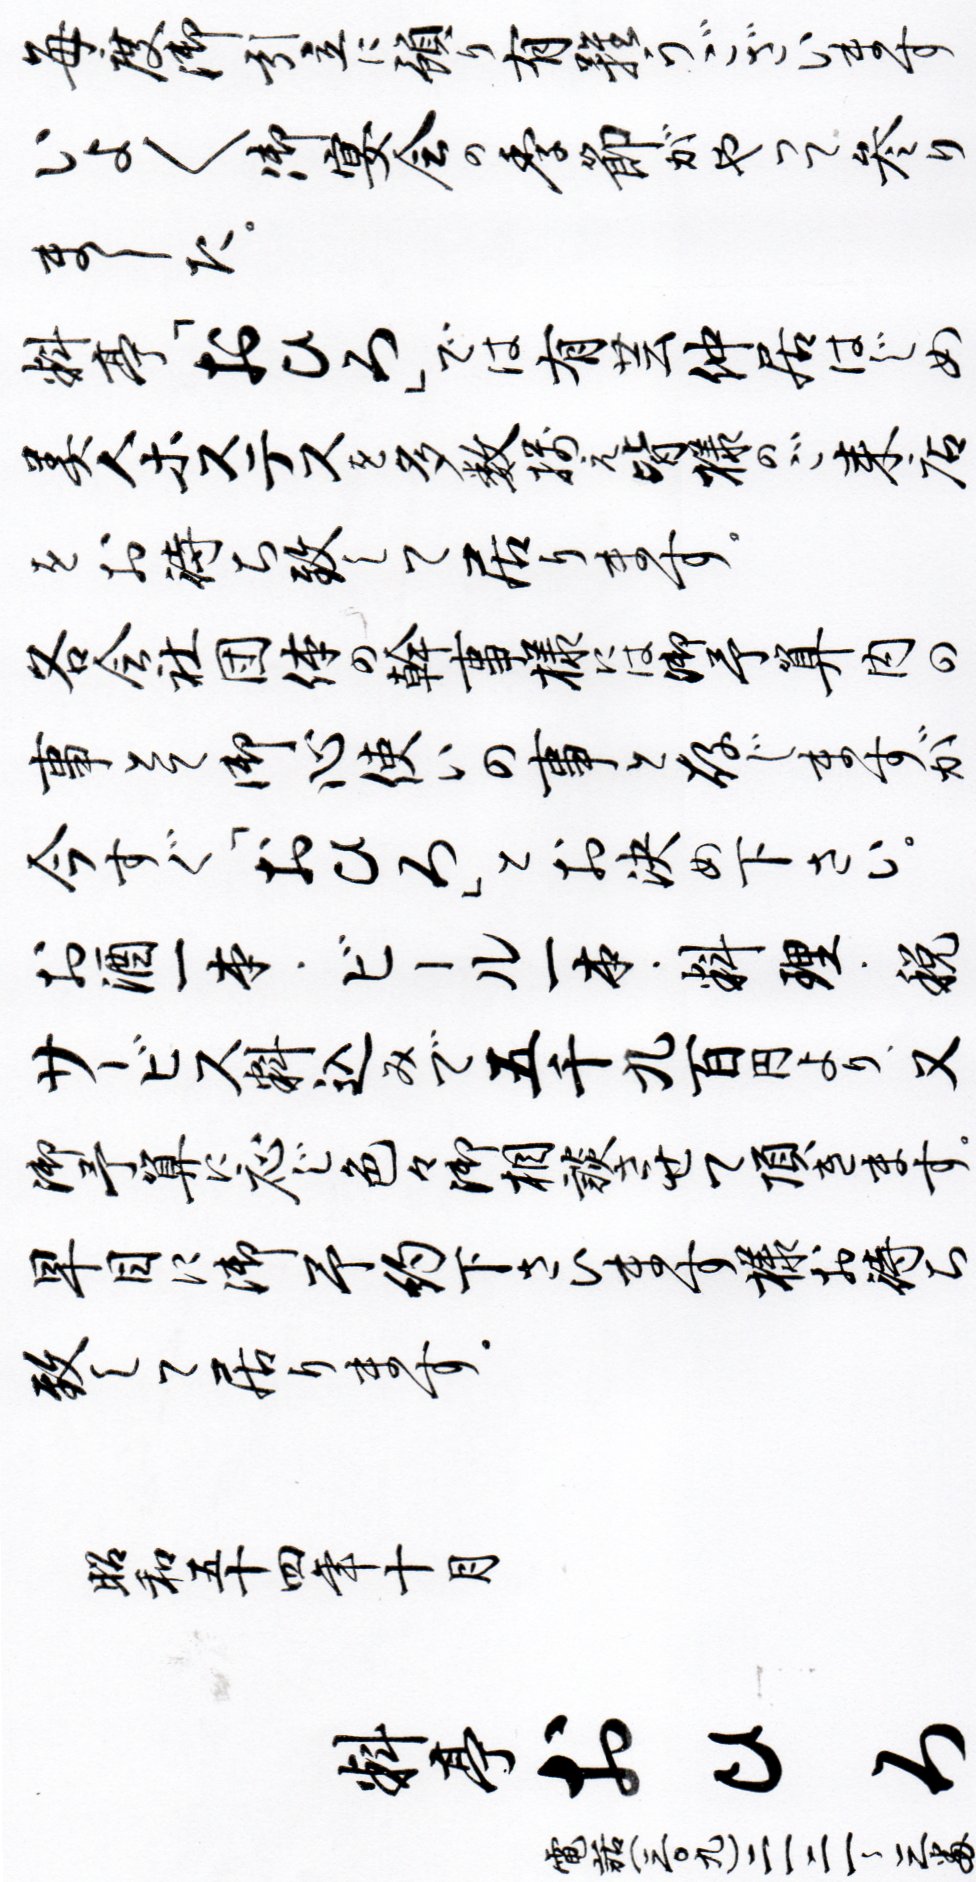 毎度御引立に預り有難うございます
いよ〱御宴会の季節がやって来り
ました。
料亭「おひろ」では有芸仲居はじめ
美人ホステスを多数揃え皆様のご来店
をお待ち致して居ります。
各会社団体の幹事様には御予算内の
事とて御心使いの事と存じますが
今すぐ「おひろ」とお決め下さい。
お酒一本・ビール一本・料理・税
サービス料込みで五千九百円より、又
御予算に応じ色々御相談させて頂きます。
早目に御予約下さいます様お待ち
致して居ります。
昭和五十四年十月
料亭おひろ
電話(三〇九)二一二一〜三番